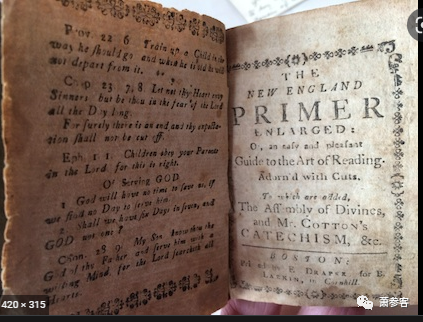 Prov. 22 6 Train up a Child in the
way he should go and when he is old he will
not depart from it.
Chap 23. 7, 8. Let not thy Heart envy
Sinners but be thou in the fear of the Lord
all the Day long.
For surely there is an end and thy expecta-
tion shall not be cut off.
Eph. 1 Children obey your Parents
in the Lord for this is right.
Of Serving GOD
1 God will have no time to save us, if
we find no Day to serve him.
2. Shall we have six Days in seven, and
GOD not one?
28 9. My Son know thou the
God of thy Father, and serve him with a
willing Mind, for the Lord searcheth all
Hearts.
THE
NEW ENGLAND
PRIMER
ENLARGED:
Or, an easy and pleasant
Guide to the Art of Reading.
Adorn'd with Cuts.
To which are added,
The Assembly of Divines,
and Mr. COTTON's
CATECHISM, &c.
BOSTON:
E. DRAPER for B.
in Cornhill.
420 × 315
萧参客